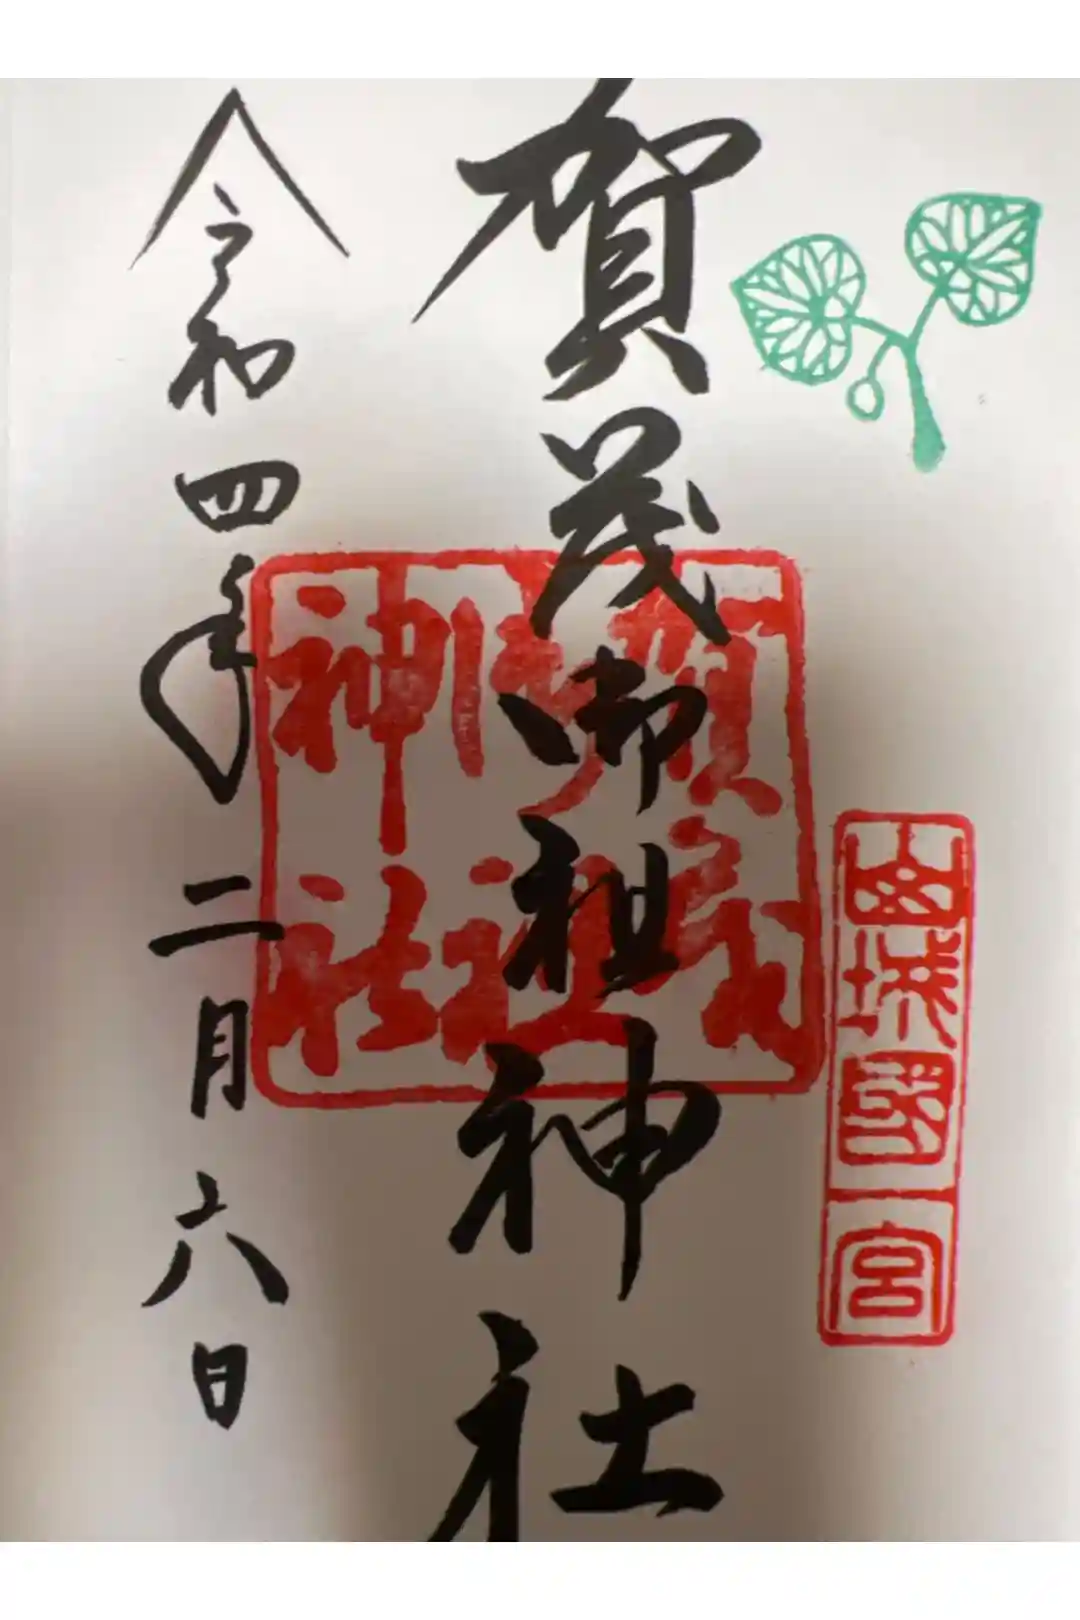 山城國一宮
賀茂御祖神社
賀茂御祖神社
令和四年二月六日